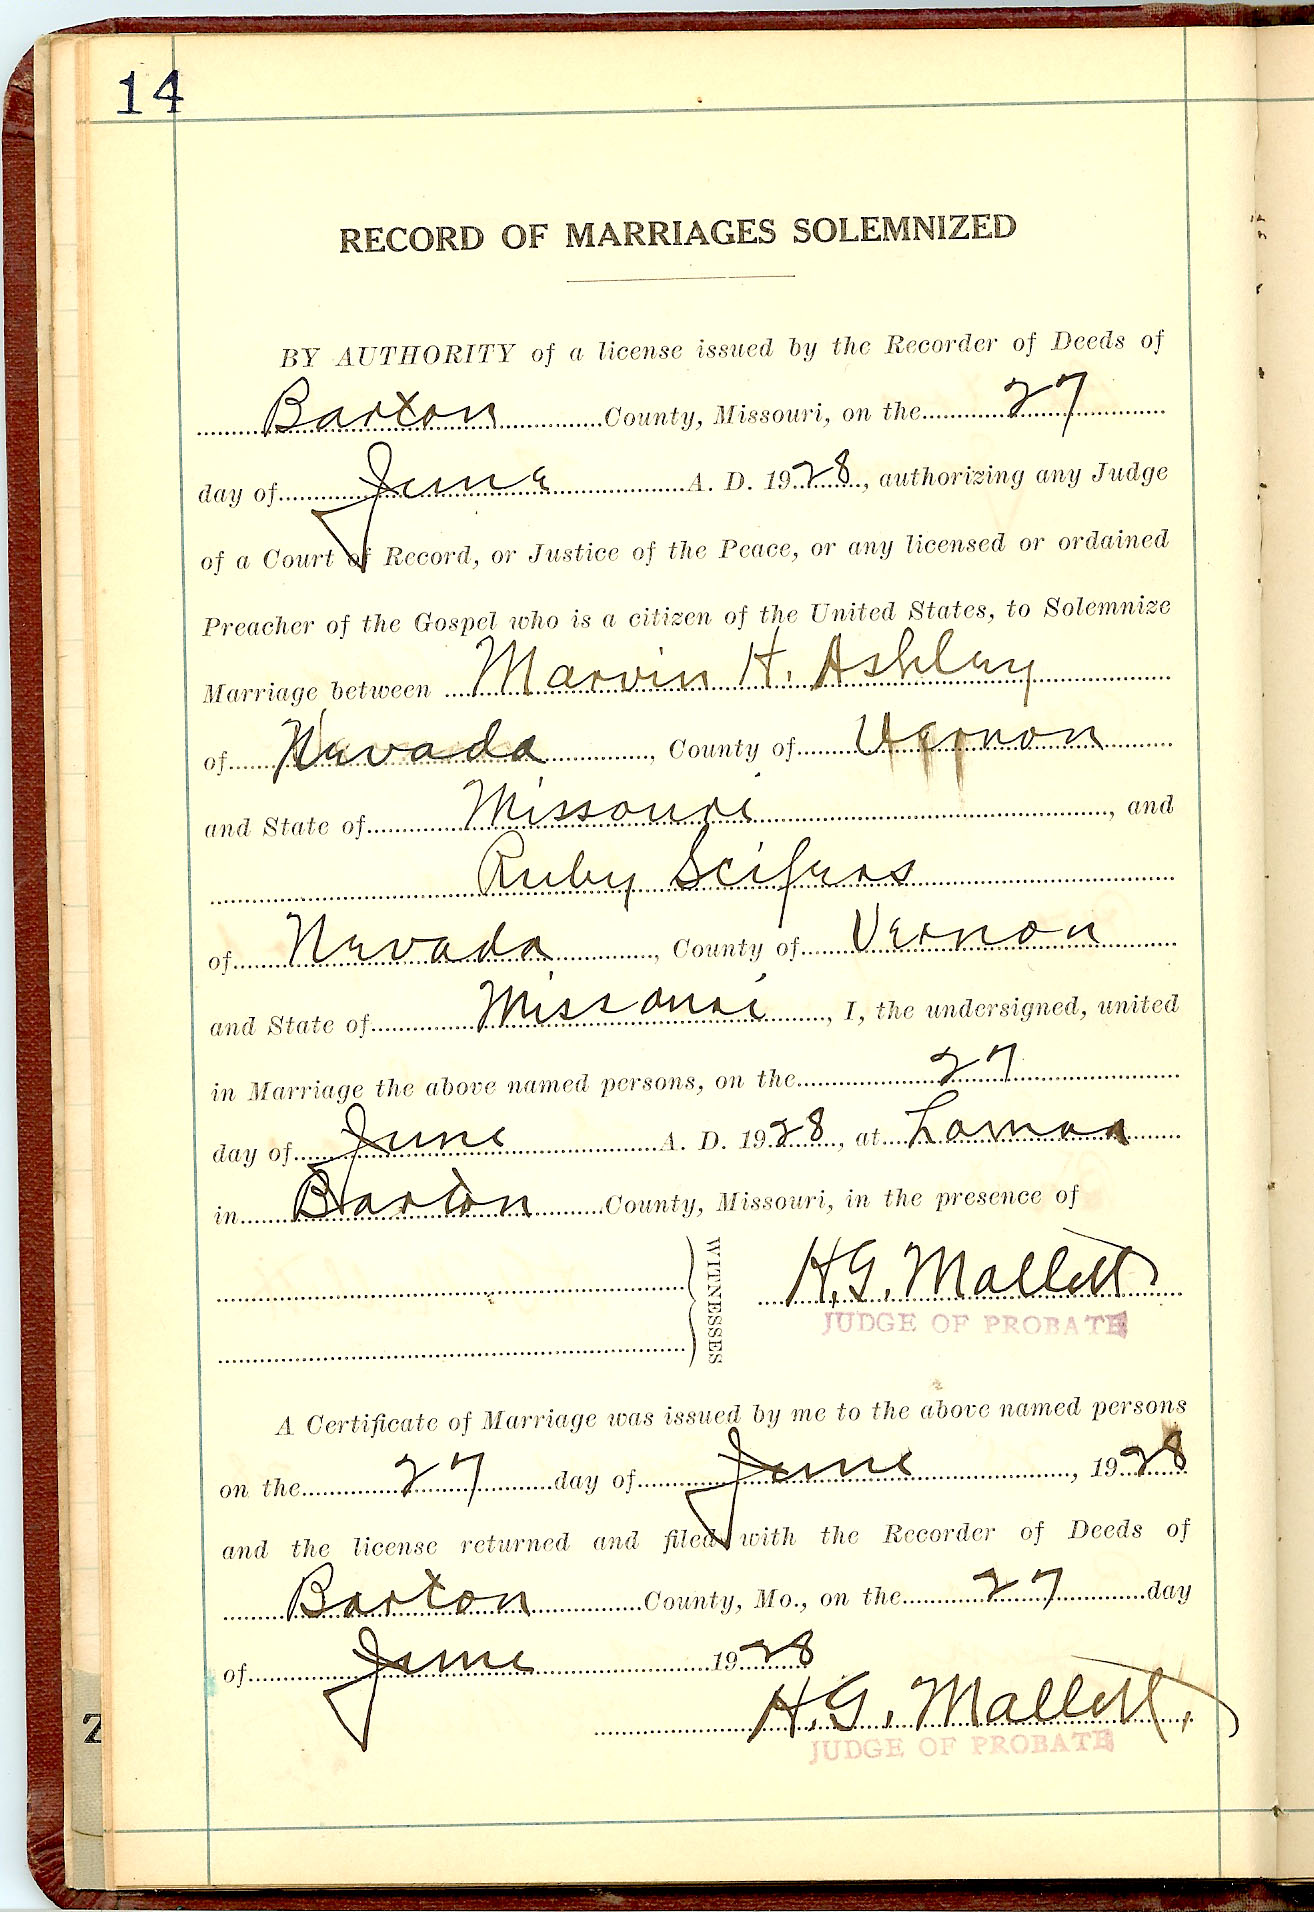 14
RECORD OF MARRIAGES SOLEMNIZED
BY AUTHORITY of a license issued by the Recorder of Deeds of
Barton County, Missouri, on the 27
day of June A. D. 1928, authorizing any Judge
of a Court of Record, or Justice of the Peace, or any licensed or ordained
Preacher of the Gospel who is a citizen of the United States, to Solemnize
Marriage between Marvin H. Ashley
of Nevada, County of Vernon
and State of Missouri, and
Ruby Scifers
of Nevada, County of Vernon
and State of Missouri, I, the undersigned, united
in Marriage the above named persons, on the 27
day of June A. D. 1928, at Lamar
in Barton County, Missouri, in the presence of
WITNESSES
H.G. Mallett
JUDGE OF PROBATE
A Certificate of Marriage was issued by me to the above named persons
on the 27 day of June, 1928
and the license returned and filed with the Recorder of Deeds of
Barton County, Mo., on the 27 day
of June 1928
H.G. Mallett.
JUDGE OF PROBATE